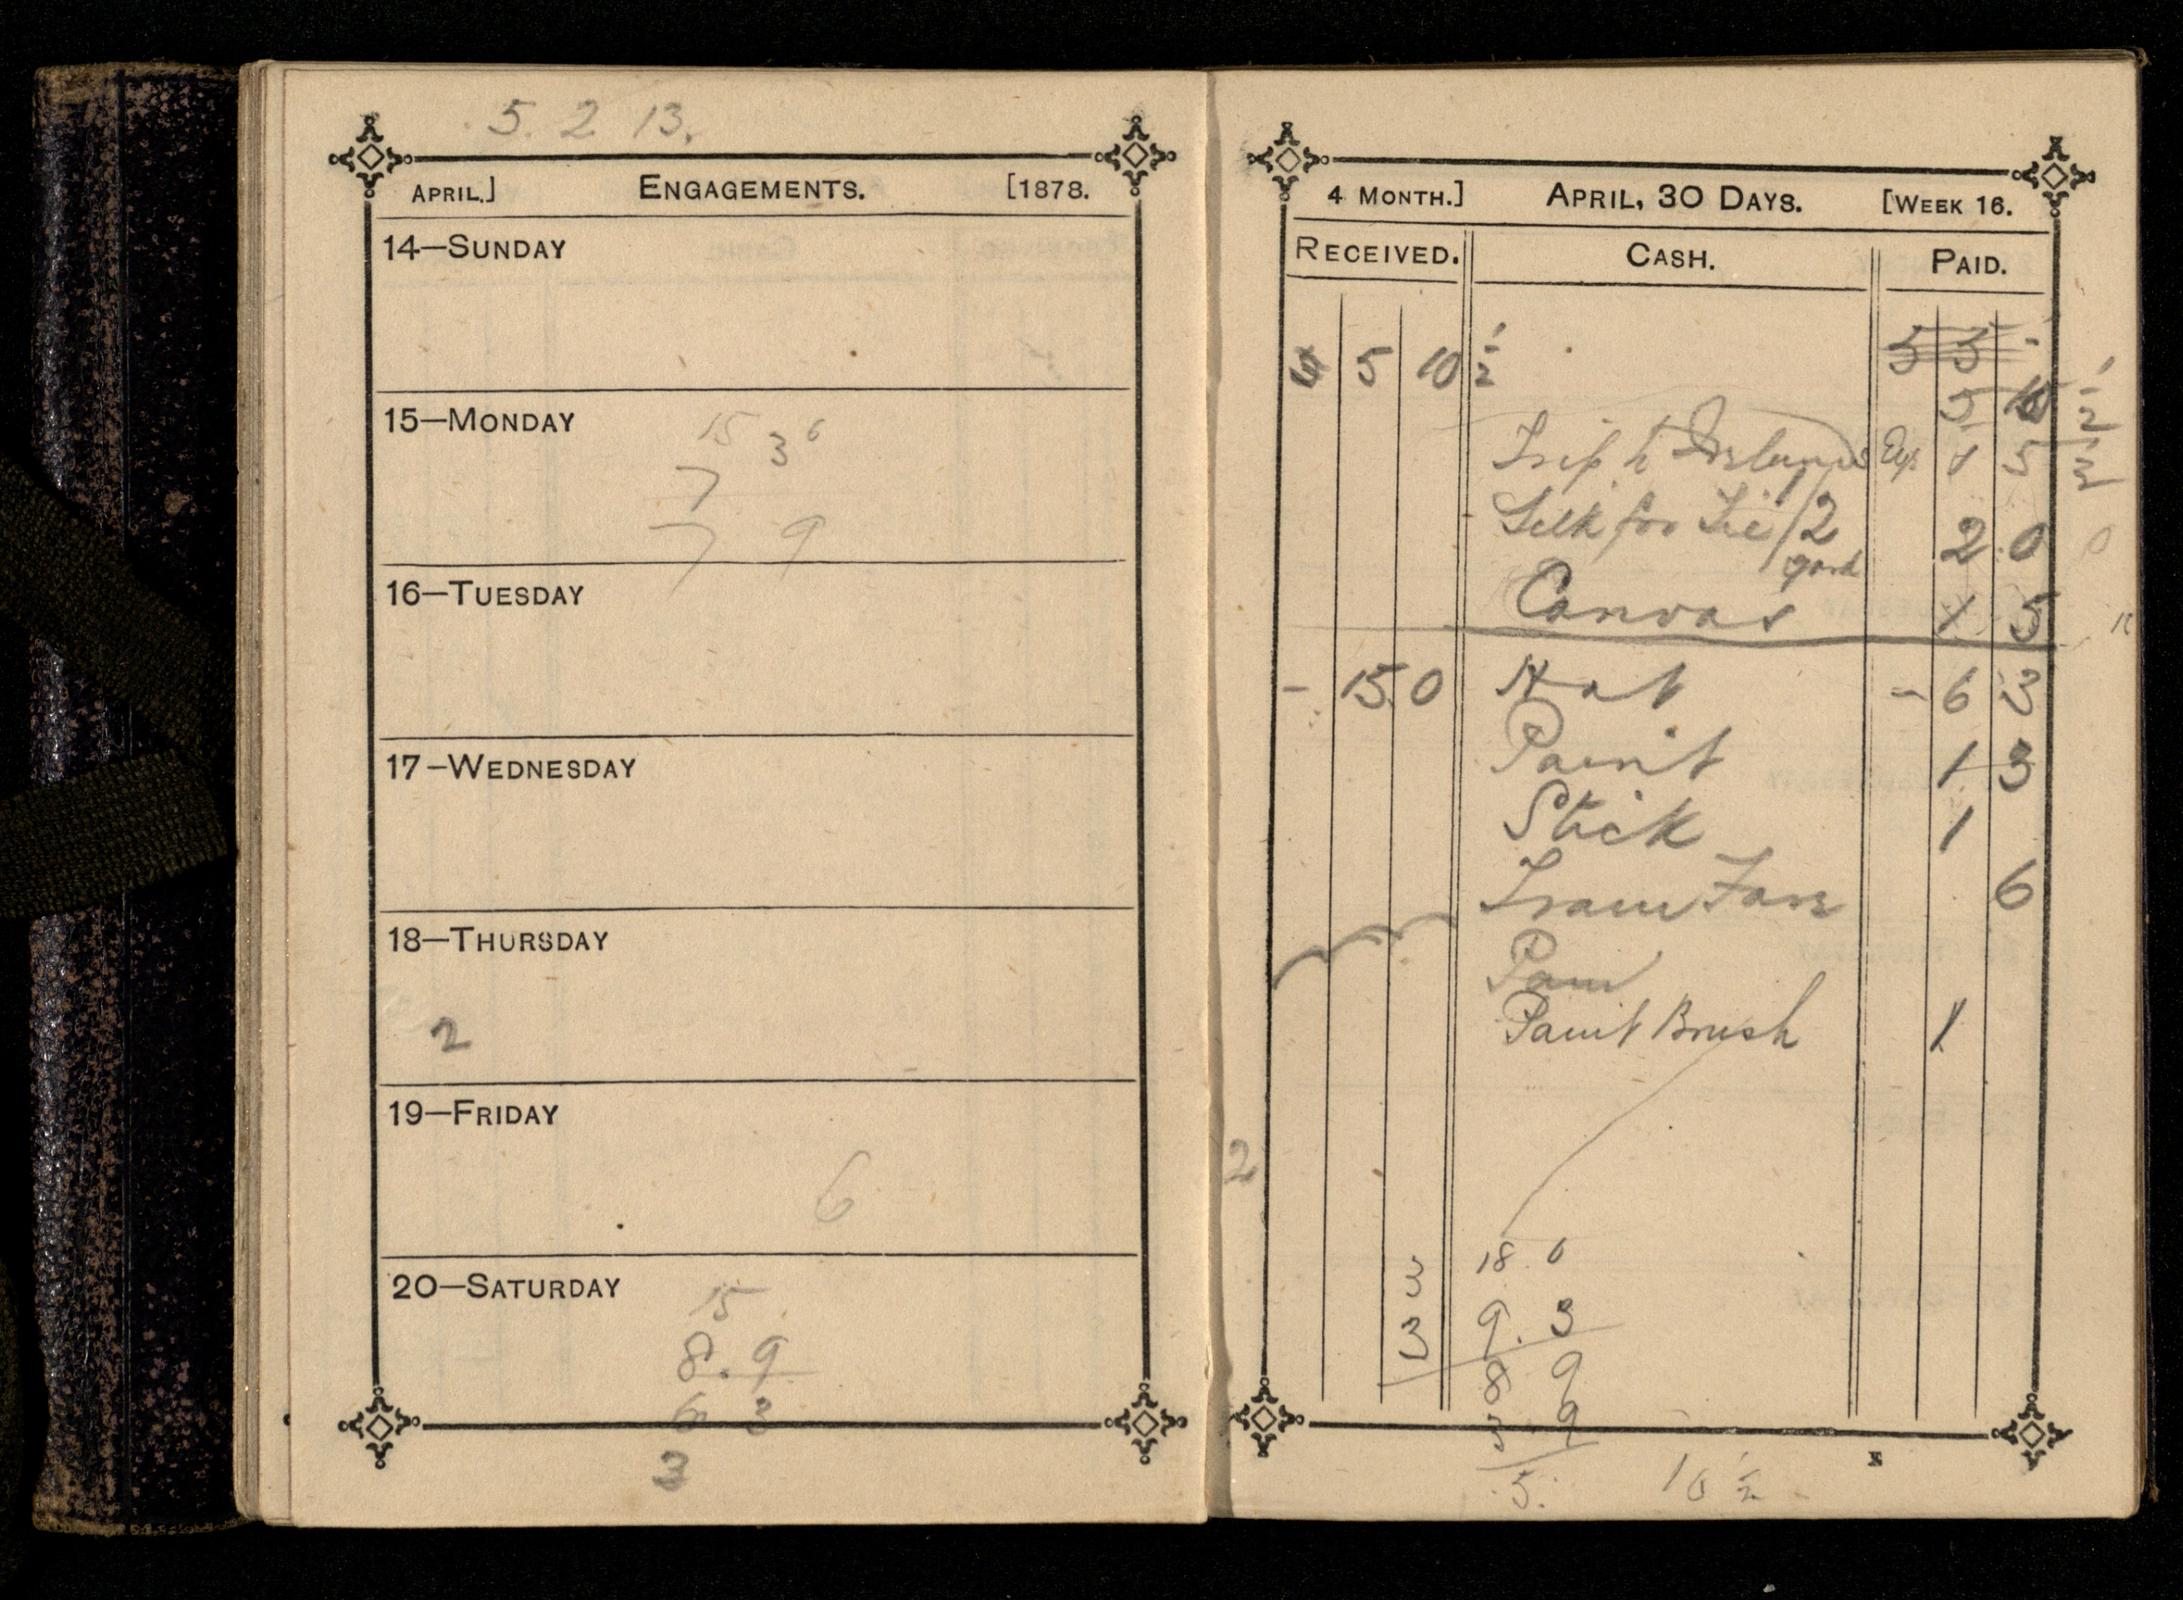 5. 2 13.
APRIL.] ENGAGEMENTS. [1878.
14—SUNDAY
15—MONDAY
15 3 6
7
7 9
16—TUESDAY
17—WEDNESDAY
18—THURSDAY
2
19—FRIDAY
6
20—SATURDAY
15
8. 9
6 3
3
4 MONTH.] APRIL, 30 DAYS. [WEEK 16.
RECEIVED. CASH. PAID.
5 10 1/2 3 3 -
5 10 1/2
Trip to Exp 1 5 1/2
Silk for Tie / 2 yard 2.0
Canvas 1 5
- 15.0 Hat - 6 3
Paint 1 3
Stick 1
Tram Fare 6
Pain
Paint Brush 1
2
3 18. 6
3 9. 3
8 9
3 9
5. 10 1/2